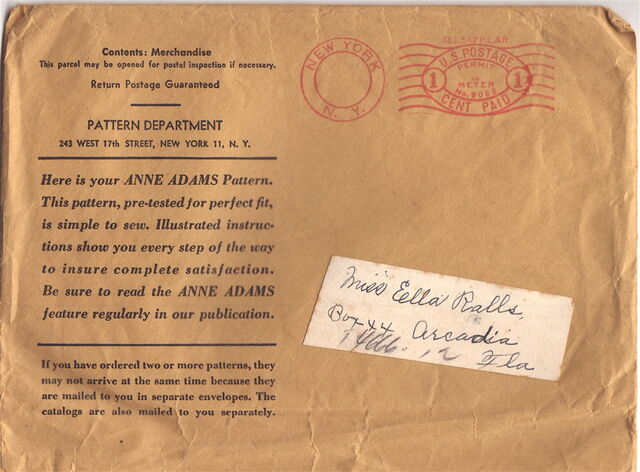 Contents: Merchandise
This parcel may be opened for postal inspection if necessary.
Return Postage Guaranteed
PATTERN DEPARTMENT
243 WEST 17th STREET, NEW YORK 11, N. Y.
Here is your ANNE ADAMS Pattern.
This pattern, pre-tested for perfect fit,
is simple to sew. Illustrated instruc-
tions show you every step of the way
to insure complete satisfaction.
Be sure to read the ANNE ADAMS
feature regularly in our publication.
If you have ordered two or more patterns, they
may not arrive at the same time because they
are mailed to you in separate envelopes. The
catalogs are also mailed to you separately.
NEW YORK
N. Y.
SEC. 562 P.L.&R.
U.S. POSTAGE
PERMIT
METER
1 1
CENT PAID
Miss Ella Ralls,
Box 44 Arcadia
Fla